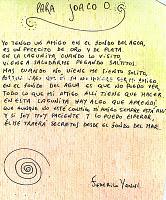 PARA JOACO O.
YO TENGO UN AMIGO EN EL FONDO DEL AGUA,
ES UN PECECITO DE ORO Y DE PLATA.
EN LA LAGUNITA CUANDO LO VISITO,
VIENE A SALUDARME PEGANDO SALTITOS.
MAS CUANDO NO VIENE ME SIENTO SOLITO,
EN EL FONDO DEL AGUA ES QUE NO PUEDO VER
TODO LO QUE MI AMIGO ALLÍ TIENE QUE HACER.
EN ESTA LAGUNITA HAY ALGO QUE APRENDÍ,
QUE AUNQUE NO ESTÉ CONMIGO, MI AMIGO SIEMPRE ESTÁ
Y SI SOY MUY PACIENTE Y LO PUEDO ESPERAR,
ÉL ME TRAERÁ SECRETOS DESDE EL FONDO DEL MAR.